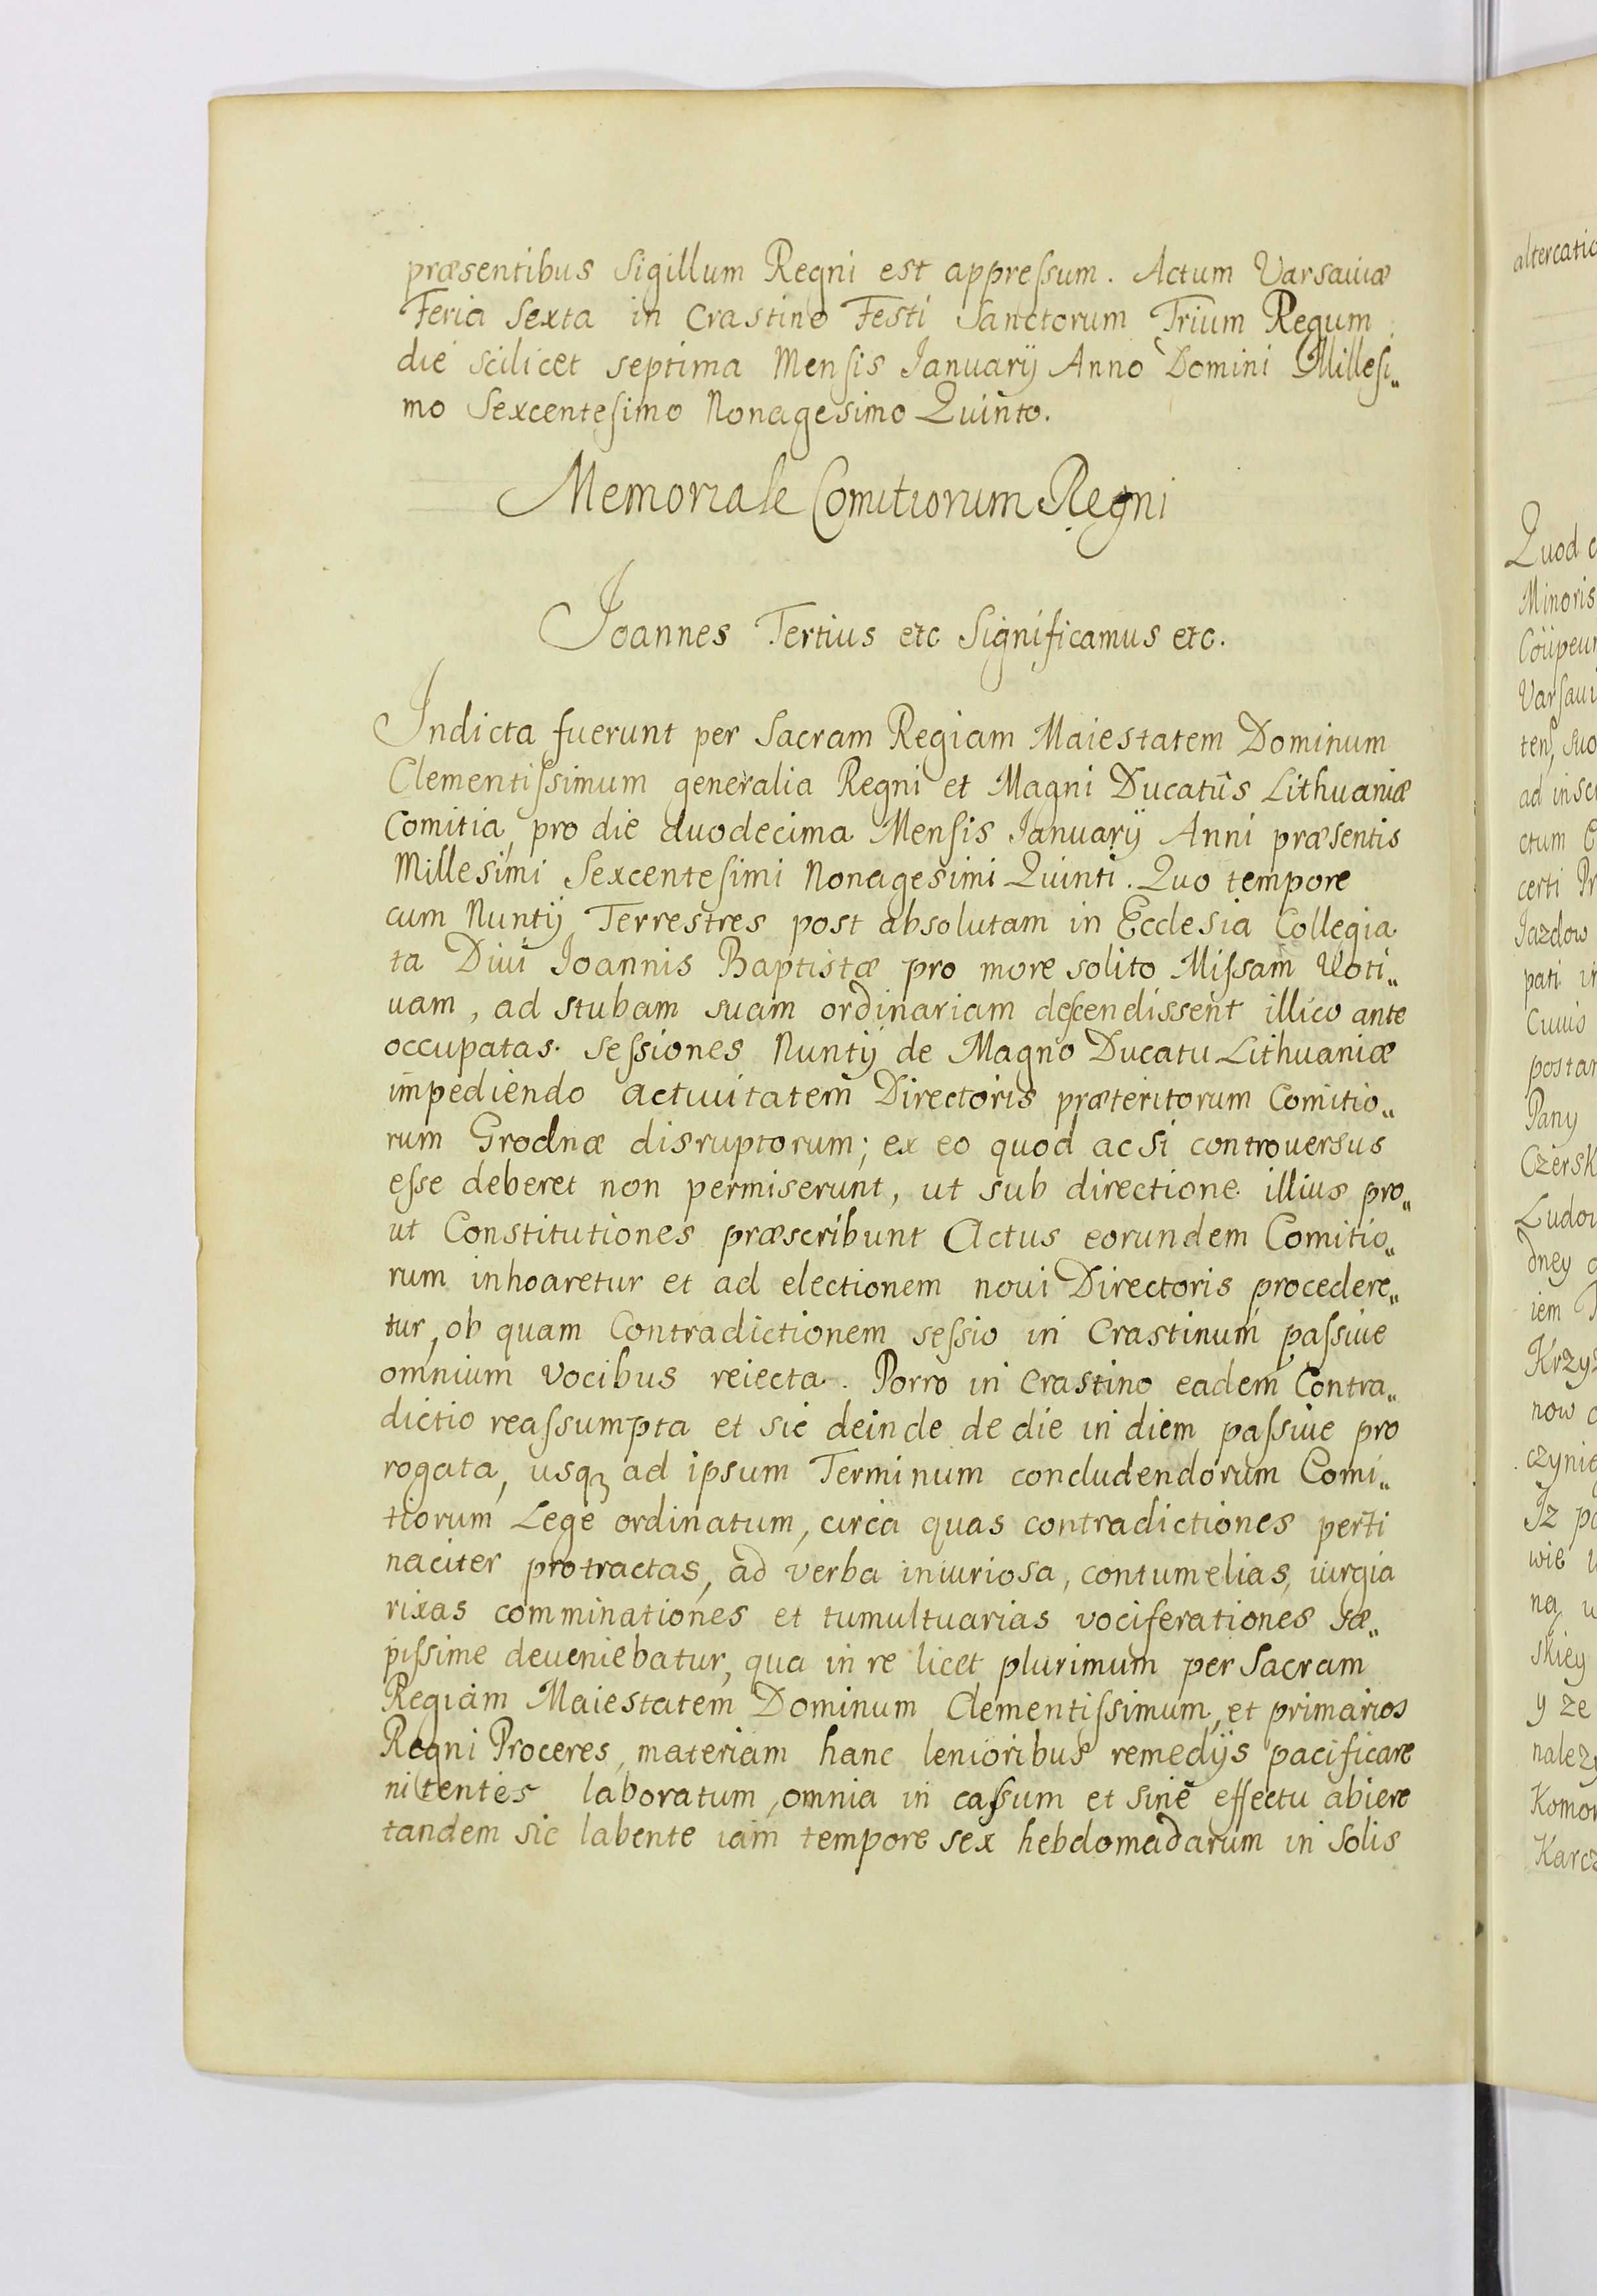 præsentibus Sigillum Regni est appressum. Actum Varsaviæ
Feria Sexta in Crastino Festi Sanctorum Trium Regum
die scilicet septima Mensis Ianuarij Anno Domini Millesi„
mo Sexcentesimo Nonagesimo Quinto.
Memoriale Comitiorum Regni
Joannes Tertius etc Significamus etc.
Indicta fuerunt per Sacram Regiam Maiestatem Dominum
Clementissimum generalia Regni et Magni Ducatûs Lithuaniæ
Comitia, pro die duodecima Mensis Ianuarij Anni præsentis
Millesimi Sexcentesimi Nonagesimi Quinti. Quo tempore
cum Nuntij Terrestres post absolutam in Ecclesia Collegia
ta Diui Ioannis Baptistæ pro more solito Missam Uoti„
uam, ad stubam suam ordinariam descendissent illico ante
occupatas sessiones Nuntij de Magno Ducatu Lithuaniæ
impediendo actiuitatem Directoris præteritorum Comitio„
rum Grodnæ disruptorum; ex eo quod ac si controversus
esse deberet non permiserunt, ut sub directione illius pro„
ut Constitutiones præscribunt Actus eorundem Comitio„
rum inhoaretur et ad electionem noui Directoris procedere„
tur, ob quam Contradictionem sessio in Crastinum passiue
omnium vocibus reiecta. Porro in Crastino eadem Contra„
dictio reassumpta et sic deinde de die in diem passiue pro
rogata, usq3 ad ipsum Terminum concludendorum Comi„
tiorum Lege ordinatum, circa quas contradictiones perti
naciter protractas, ad verba iniuriosa, contumelias, iurgia
rixas comminationes et tumultuarias vociferationes sæ„
pissime deueniebatur, qua in re licet plurimum per Sacram
Regiam Maiestatem Dominum Clementissimum, et primarios
Regni Proceres, materiam hanc lenioribus remedijs pacificare
nitentes laboratum, omnia in cassum et sine effectu abiere
tandem sic labente iam tempore sex hebdomadarum in solis
Quod
Minoris
ad
ctum
certi
Jazdow
pati
Cuius
Pany
dney
iem
now
Iz
wie
skiey
y ze